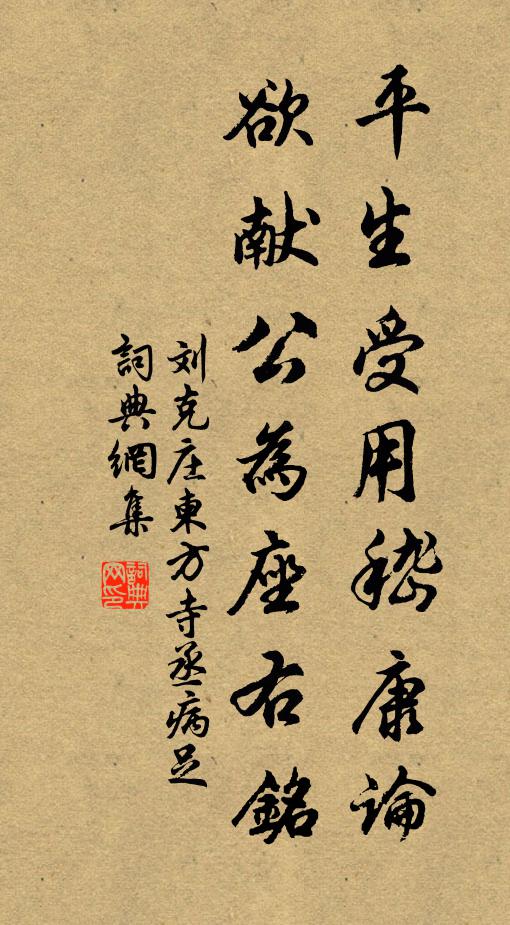 平生受用嵇康論
欲献公為座右銘
刘克庄東方寺丞病足
詞典網集
詞典网印